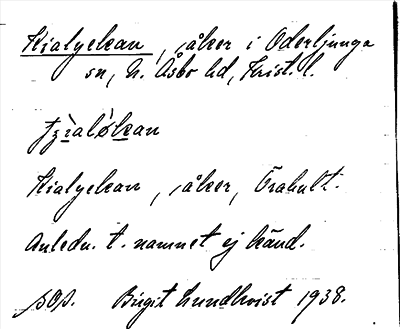 Kialyckan, åker i Oderljunga
sn, N. Åsbo hd, Krist. l.
Kialyckan, åker, Örahult.
Anledn. t. namnet ej känd.
Birgit Lundkvist 1938.